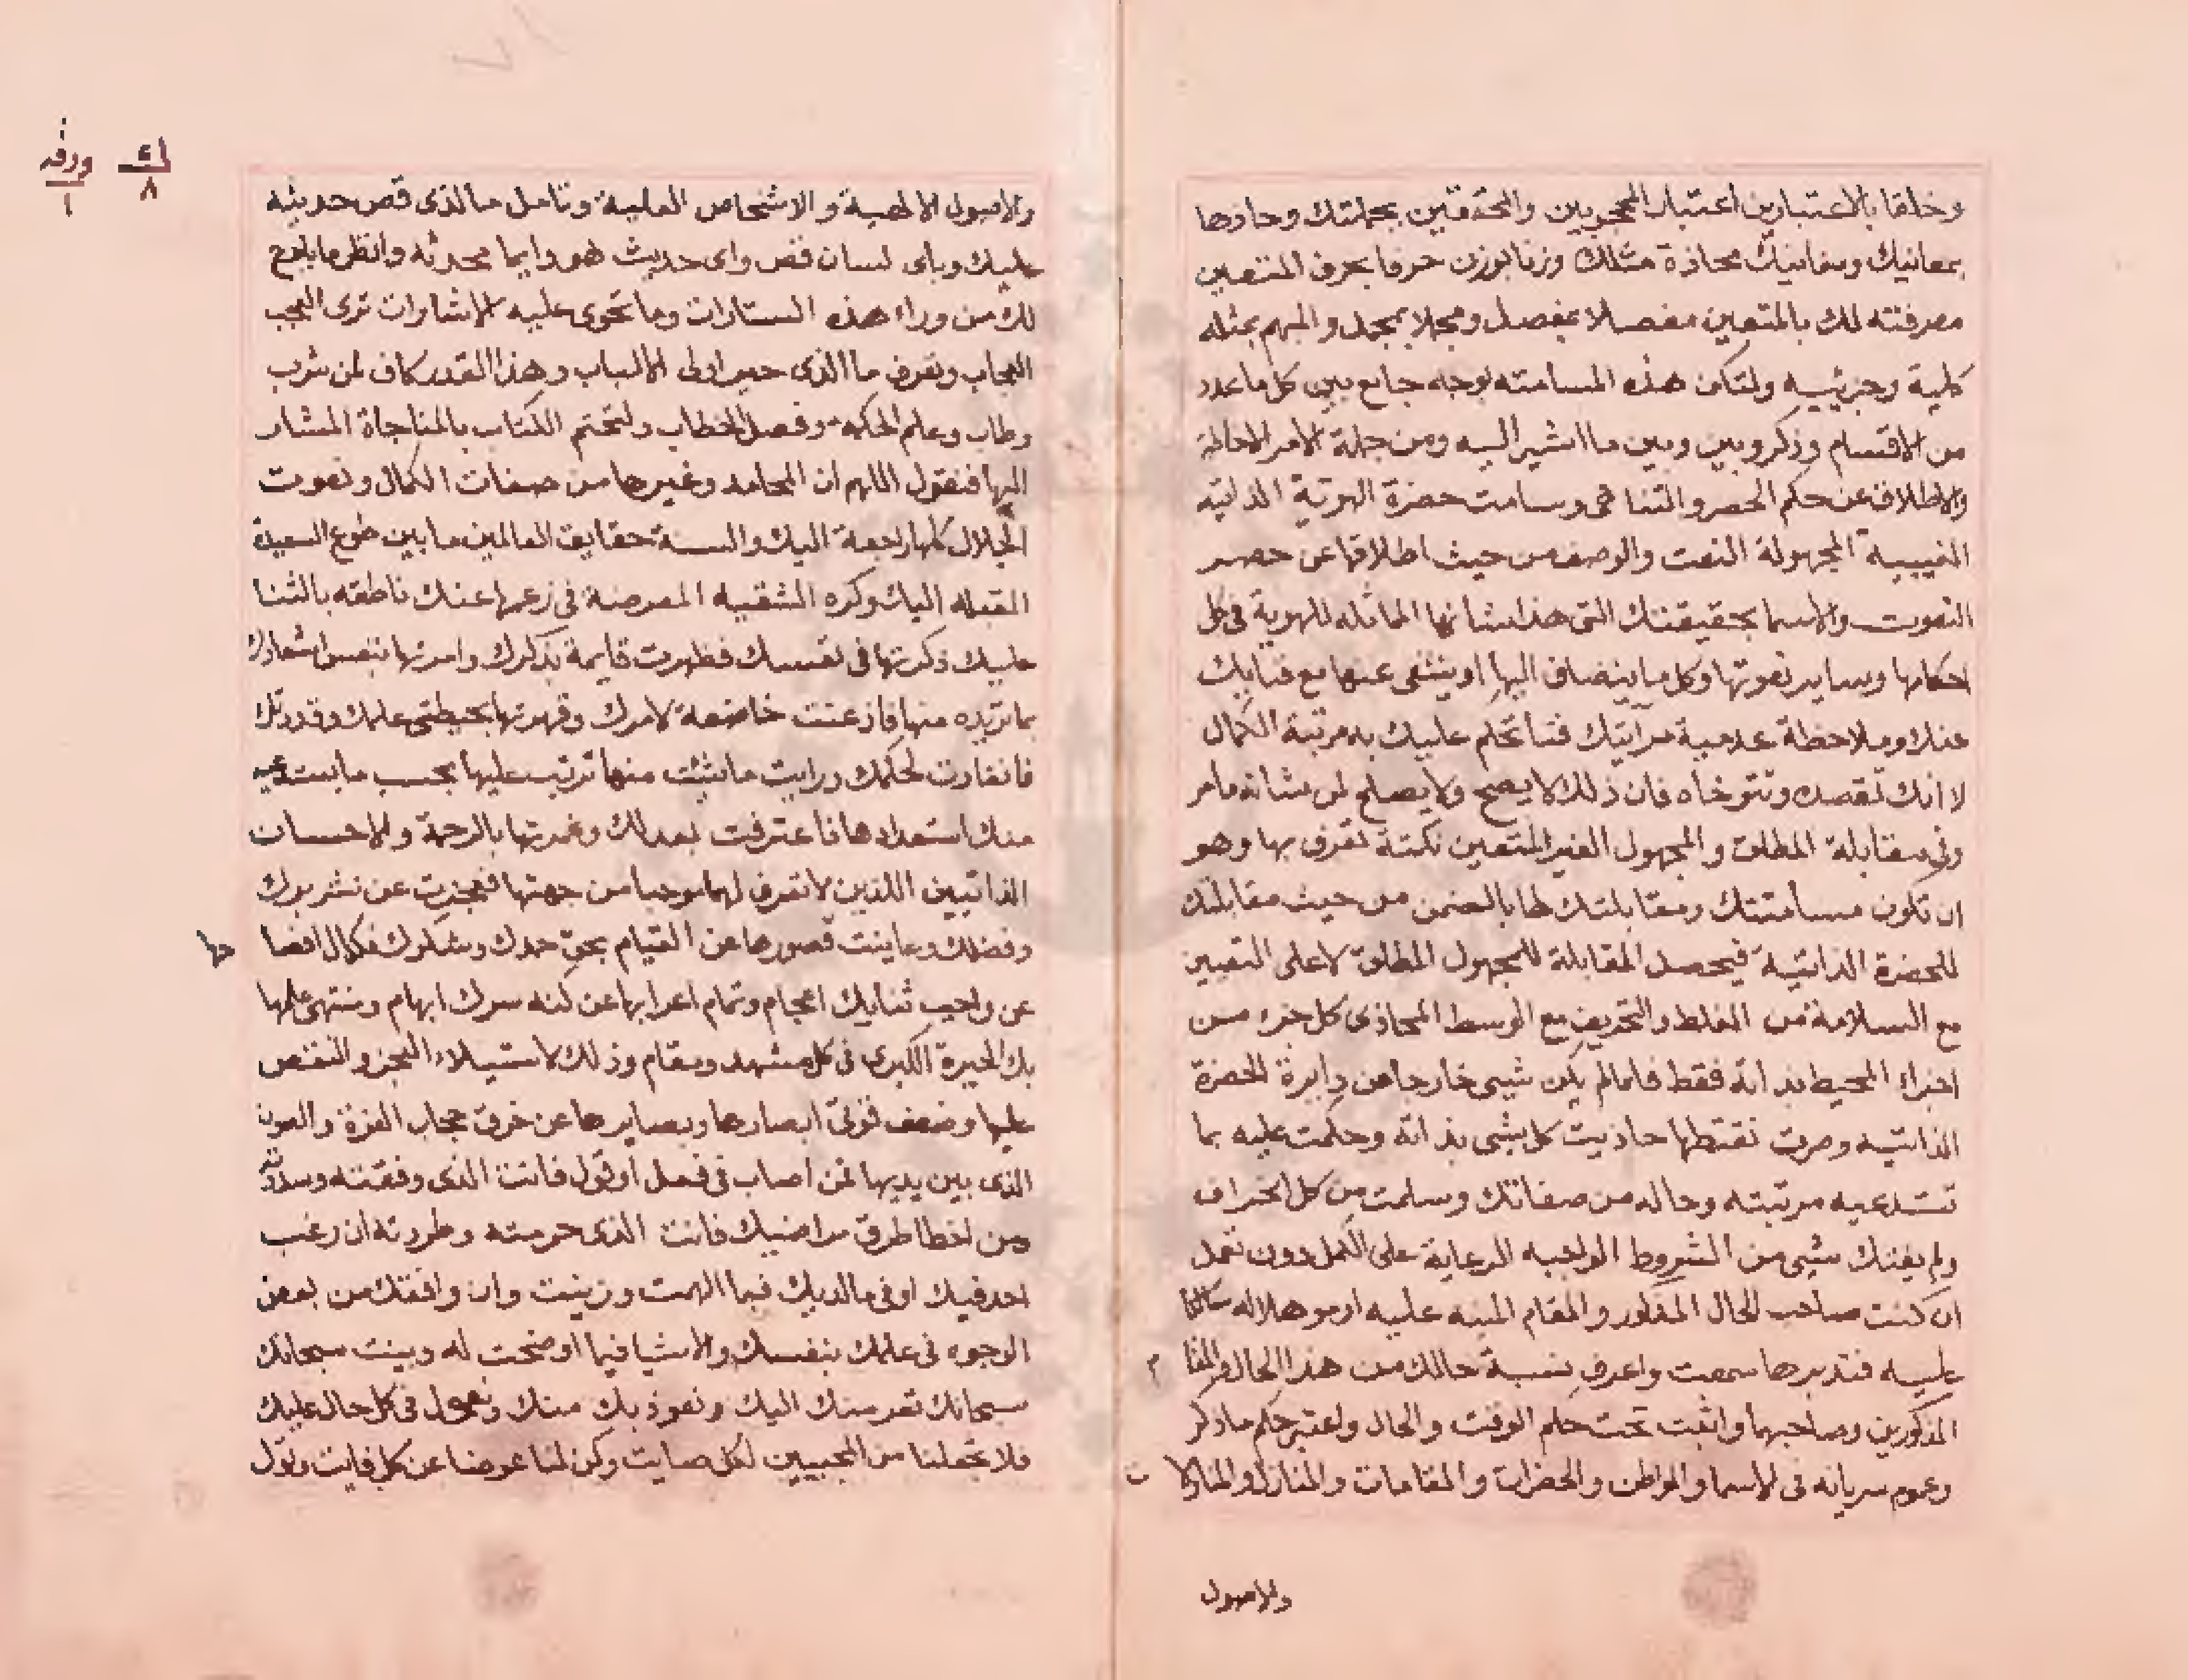 وخلقا بالاعتبارين اعتبار المحجوبين والمحققين بجملتك وحاذها
بمعانيك ومغانيك محاذة مثلك وزنا بوزن حرفا بحرف المتعين
معرفته لك بالمتعين مفصلا بمفصل ومجملا بمجمل والمبهم بمثله
كلية وجزئييه ولتكن هذه المسامته بوجه جامع بين كل ما عدد
من الاقسام وذكر وبين وبين ما اشير اليه ومن جملة الامر الاحالة
والاطلاق عن حكم الحصر والتناهى وسامت حضرة الهوية الذاتيه
الغيبية المجهولة النعت والوصف من حيث اطلاقها عن حصر
النعوت والاسما بحقيقتك التى هذا شانها المماثله للهوية فى كل
احكامها وساير نعوتها وكل ما ينضاف اليها او ينتفى عنها مع فنايك
عنك وملاحظة عدمية مرآتيك فتا تحكم عليك به مرتبة الكمال
لا انك تقصده وتتوخاه فان ذلك لا يصح ولا يصلح لمن شانه ما مر
وفى مقابلة المطلق والمجهول الغير المتعين نكتة تعرف بها وهو
ان تكون مسامتتك ومقابلتك لها بالضمن من حيث مقابلتك
للحضرة الذاتية فيحصل المقابلة للمجهول المطلق لا على التعيين
مع السلامة من الغلط والتحريف مع الوسط المحاذى كل جزء من
اجزاء المحيط بذاته فقط فلما لم يكن شيى خارجا عن دايرة الحضرة
الذاتيه وصرت نقتطها حاذيت كل شيى بذاته وحكمت عليه بما
تستدعيه مرتبته وحاله من صفاتك وسلمت من كل انحراف
ولم يفتك شيى من الشروط الواجبه الرعاية على الكمل دون تعمل
ان كنت صاحب الحال المذكور والمقام المنبه عليه ارموها لاله
عليه فتدبر ما سمعت واعرف نسبة حالك من هذا الحال والمقا م
المذكورين وصاحبهما واثبت تحت حكم الوقت والحال واعتبر حكم ما ذكر
وعموم سريانه فى الاسما والمواطن والحضرات والمقامات والمنازل والمنازلا ت
والاصول
ك ورقه
٨ ١
والاصول الالهية والاشخاص العلية وتامل ما الذى قص حديثه
عليك وباى لسان قص واى حديث هو دايما محدثه وانظر ما يلوح
لك من وراء هذه الستارات وما تحوى عليه الاشارات ترى العجب
العجاب وتعرف ما الذى حير اولى الالباب وهذا القدر كاف لمن شرب
وطاب وعلم الحكمه وفصل الخطاب ولنختم الكتاب بالمناجاة المشار
اليها فنقول اللهم ان المحامد وغيرها من صفات الكمال ونعوت
الجلال كلها راجعة اليك والسنة حقايق العالمين ما بين طوع السعيدة
المقبله اليك وكره الشقيه المعرضة فى زعمها عنك ناطقه بالثنا
عليك ذكرتها فى نفسك فظهرت قايمة بذكرك وامرتها بنفس اشعارك
بما تريده منها فاذعنت خاضعة لامرك وقهرتها بحيطتى علمك وقدرتك
فانقادت لحكمك ورايت ما يثبت منها ترتب عليها بحسب ما يستدعيه
منك استعدادها فاعترفت بعدلك وغمرتها بالرحمة والاحسان
الذاتيين اللذين لا تعرف لهما موجبا من جهتها فعجزت عن نشر برك
وفضلك وعاينت قصورها عن القيام بحق حمدك وشكرك فكمال افصا حها
عن واجب ثنايك اعجام وتمام اعرابها عن كنه سرك ابهام ومنتهى علمها
بك الحيرة الكبرى فى كل مشهد ومقام وذلك لاستيلاء العجز والنقص
عليها وضعف قوتى ابصارها وبصايرها عن خرق حجاب العزة والصون
الذى بين يديها فمن اصاب فى فعل او قول فانت الذى وفقته وسددته
ومن اخطا طرق مراضيك فانت الذى حرمته وطردته ان رغب
احد فيك او فى ما لديك فبما الهمت وزينت وان وافقك من بعض
الوجوه فى علمك بنفسك والاشيا فيما اوضحت له وبينت سبحانك
سبحانك نفر منك اليك ونعوذ بك منك ونعول فى كل حال عليك
فلا تجعلنا من المجيبين لكل صايت وكن لنا عوضا عن كل فايت وتول